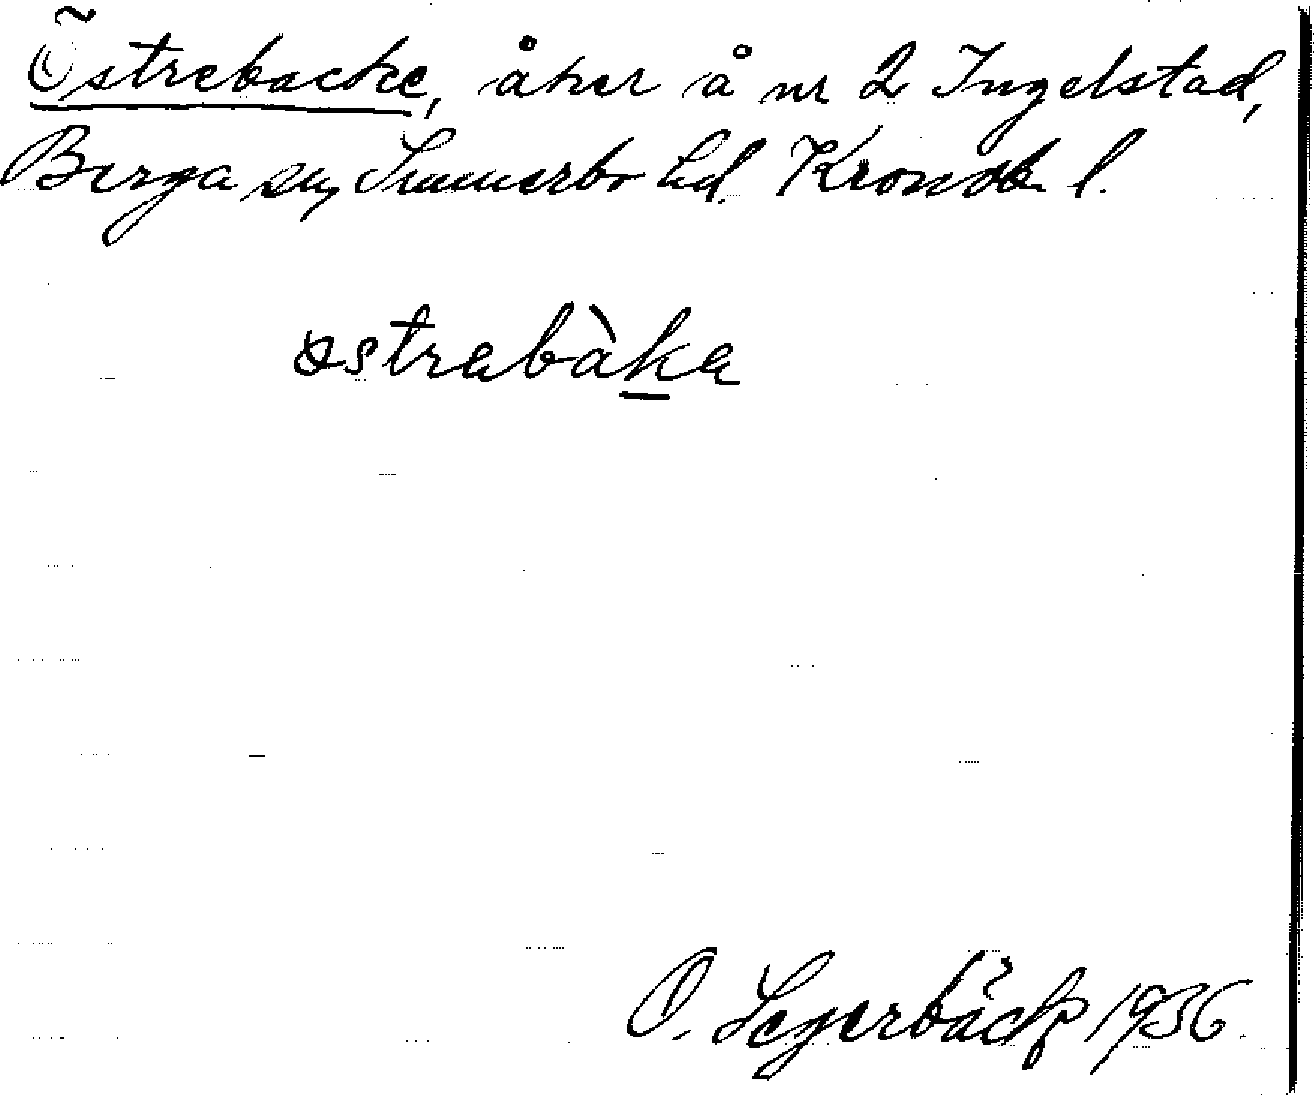 Östrebacke, åker å nr 2 Ingelstad,
Berga sn, Sunnerbo hd. Kronob. l.
østrabàka
O. Segerbäck 1936.